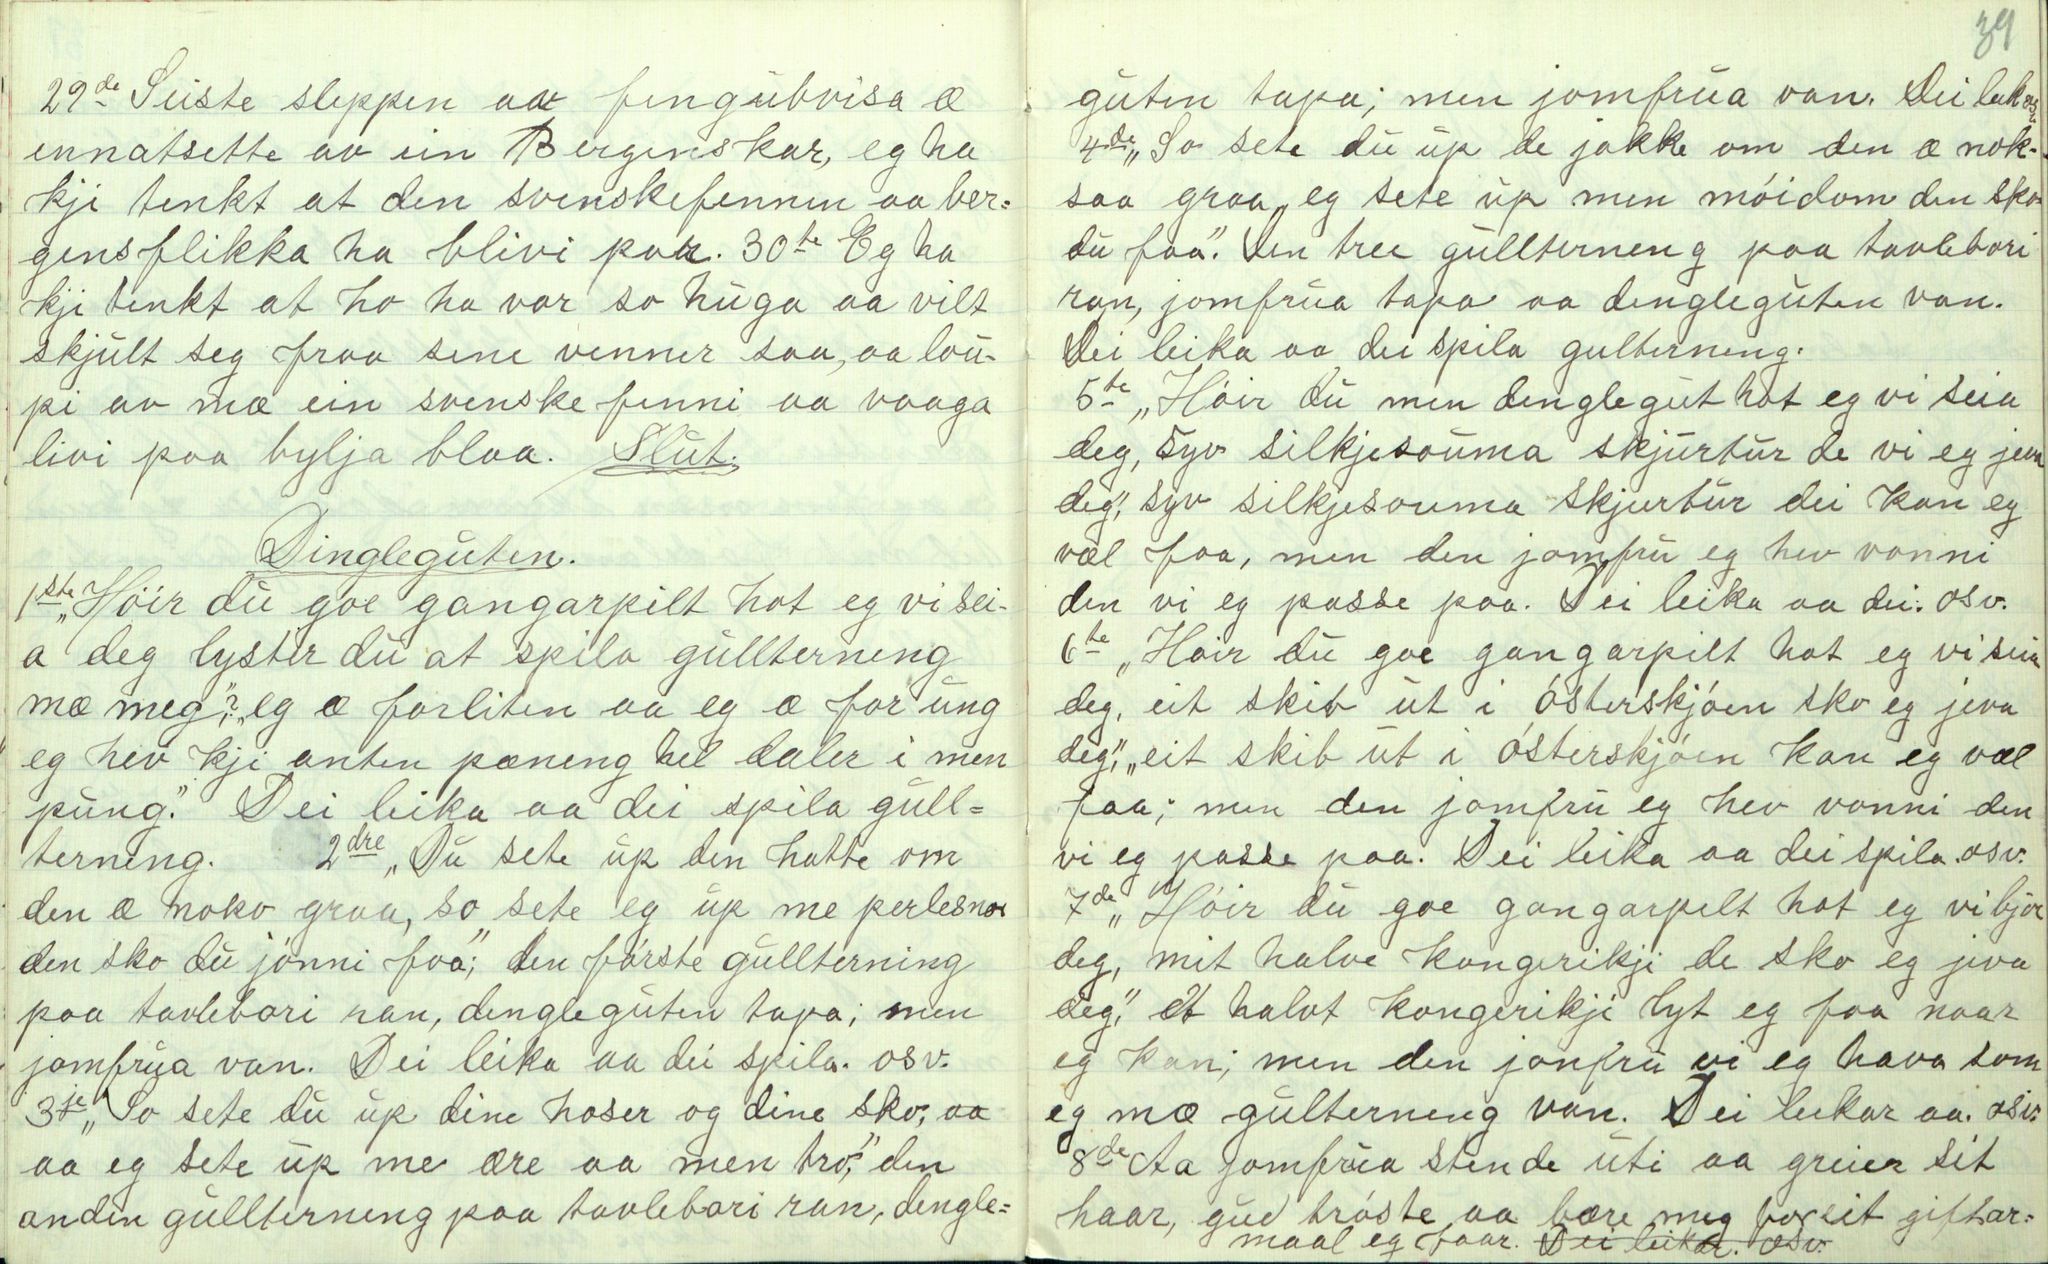 29de Seiste sleppen aat fengubvisa æ
ennatsette av ein Bergenskar, eg ha
kji tenkt at den svenskefennen aa ber=
gensflikka ha blivi paa. 30te Eg ha
kji tenkt at ho ha var so huga aa vilt
skjult seg fraa sene venner saa, aa lou-
pi av mæ ein svenske fenni aa vaaga
livi paa bylja blaa. Slut.
Dingleguten.
1ste „Höir du goe gangarpilt hot eg vi sei-
a deg lyster du at spila gullterneng
mæ meg"?, „eg æ forliten aa eg æ for ung
eg hev kji anten pæneng hel daler i men
pung". Dei leika aa dei spila gull=
terneng. 2dre „Du sete up den hatte om
den æ noko graa, so sete eg up me perlesnor
den sko du jönni faa"; den förste gullterning
paa tavlebori ran, dengleguten tapa; men
jomfrua van. Dei leika aa dei spila. osv.
3je „So sete du up dine hoser og dine sko, aa
aa eg sete up me ære aa men tro," den
anden gullterneng paa tavlebori ran, dengle=
39
guten tapa; men jomfrua van. Dei leik osv.
4de „So sete du up de jakke om den æ nok-
saa graa, eg sete up men möidom den sko
du faa". Den tree gullterneng paa tavlebori
ran, jomfrua tapa aa dengleguten van.
Dei leika aa dei spila gulterneng.
5te „Höir du men denglegut hot eg vi seia
deg, syv silkjesouma skjurtur de vi eg jeva
deg", syv silkjesouma skjurtur dei kan eg
væl faa, men den jomfru eg hev vonni
den vi eg passe paa. Dei leika aa dei. osv.
6te „Höir du goe gangarpilt hot eg vi seia
deg, eit skib ut i österskjöen sko eg jeva
deg", „eit skib ut i österskjöen kan eg væl
faa; men den jomfru eg hev vonni den
vi eg passe paa. Dei leika aa dei spila. osv.
7de „Höir du goe gangarpilt hot eg vi bjoe
deg, mit halve kongerikji de sko eg jeva
deg", et halvt kongerikji lyt eg faa naar
eg kan; men den jonfru vi eg hava som
eg mæ gulterneng van. Dei leikar aa. osv.
8de Aa jomfrua stende uti aa greier sit
haar, gud tröste aa bære meg for eit giftar=
maal eg faar. Dei leikar. osv.